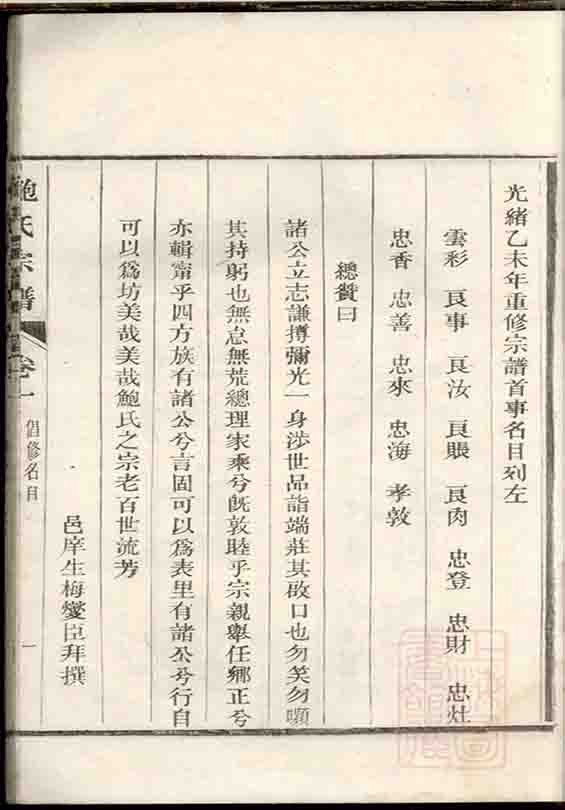 光緒乙未年重修宗譜首事名目列左
雲彩 良事 良汝 良賬 良肉 忠登 忠財 忠灶
忠香 忠善 忠來 忠海 孝敦
總贊曰
諸公立志謙撙彌光一身涉世品詣端莊其啟口也勿笑勿嚬
其持躬也無怠無荒總理家乘兮既敦睦乎宗親舉任鄉正兮
亦輯甯乎四方族有諸公兮言固可以為表里有諸公兮行自
可以為坊美哉美哉鮑氏之宗老百世流芳
邑庠生梅燮臣拜撰
鮑氏宗譜 卷一 倡修名目 一